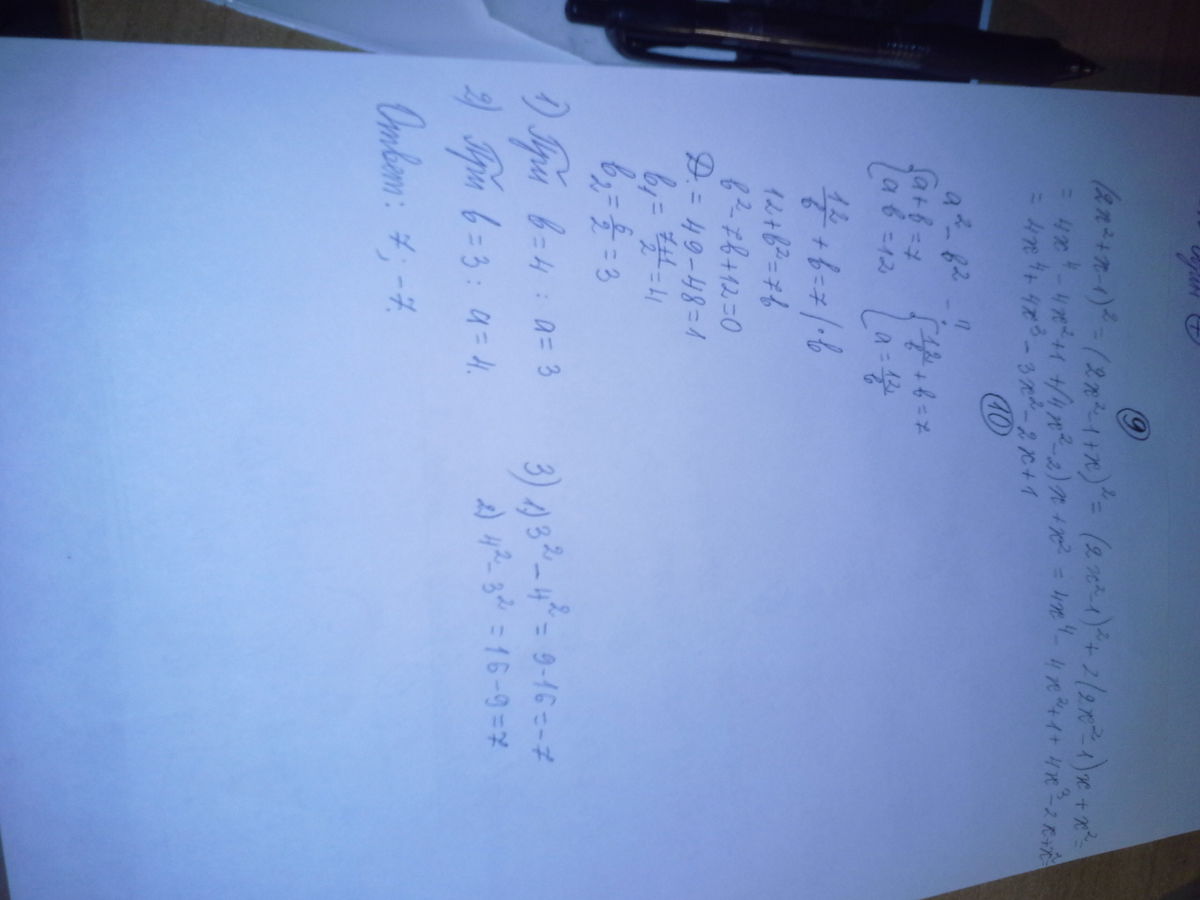 ⑨
(2x²+x-1)² = (2x²-1+x)² = (2x²-1)²+2(2x²-1)x+x²=
= 4x⁴-4x²+1+(4x²-2)x+x² = 4x⁴-4x²+1+4x³-2x+x²=
= 4x⁴+4x³-3x²-2x+1
⑩
a²-b² - ?
{a+b=7 {12/b+b=7
{ab=12 {a=12/b
12/b+b=7 |·b
12+b²=7b
b²-7b+12=0
Д.=49-48=1
b₁=7+1/2=4
b₂=6/2=3
1) При b=4: a=3
2) При b=3: a=4.
3) 1) 3²-4²=9-16=-7
2) 4²-3²=16-9=7
Ответ: 7; -7.